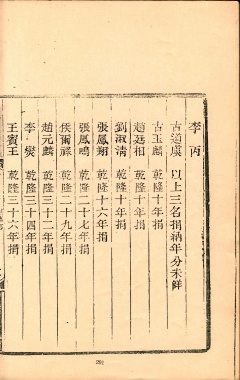 李丙
古道虞 以上三名捐納年分未鮮
古玉麟 乾隆十年捐
趙廷相 乾隆十年捐
劉淑淸 乾隆十年捐
張鳳翔 乾隆十六年捐
張鳳鳴 乾隆二十七年捐
侯爾祿 乾隆二十九年捐
趙元麟 乾隆三十二年捐
李爕 乾隆三十四年捐
王賓王 乾隆三十六年捐